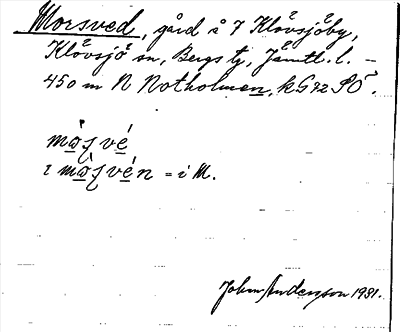 Morsved, gård å 7 Klövsjöby,
Klövsjö sn, Bergs tg, Jämtl. l. –
450 m N Notholmen, kG92 SÖ.
i = i M.
John Andersson 1931.